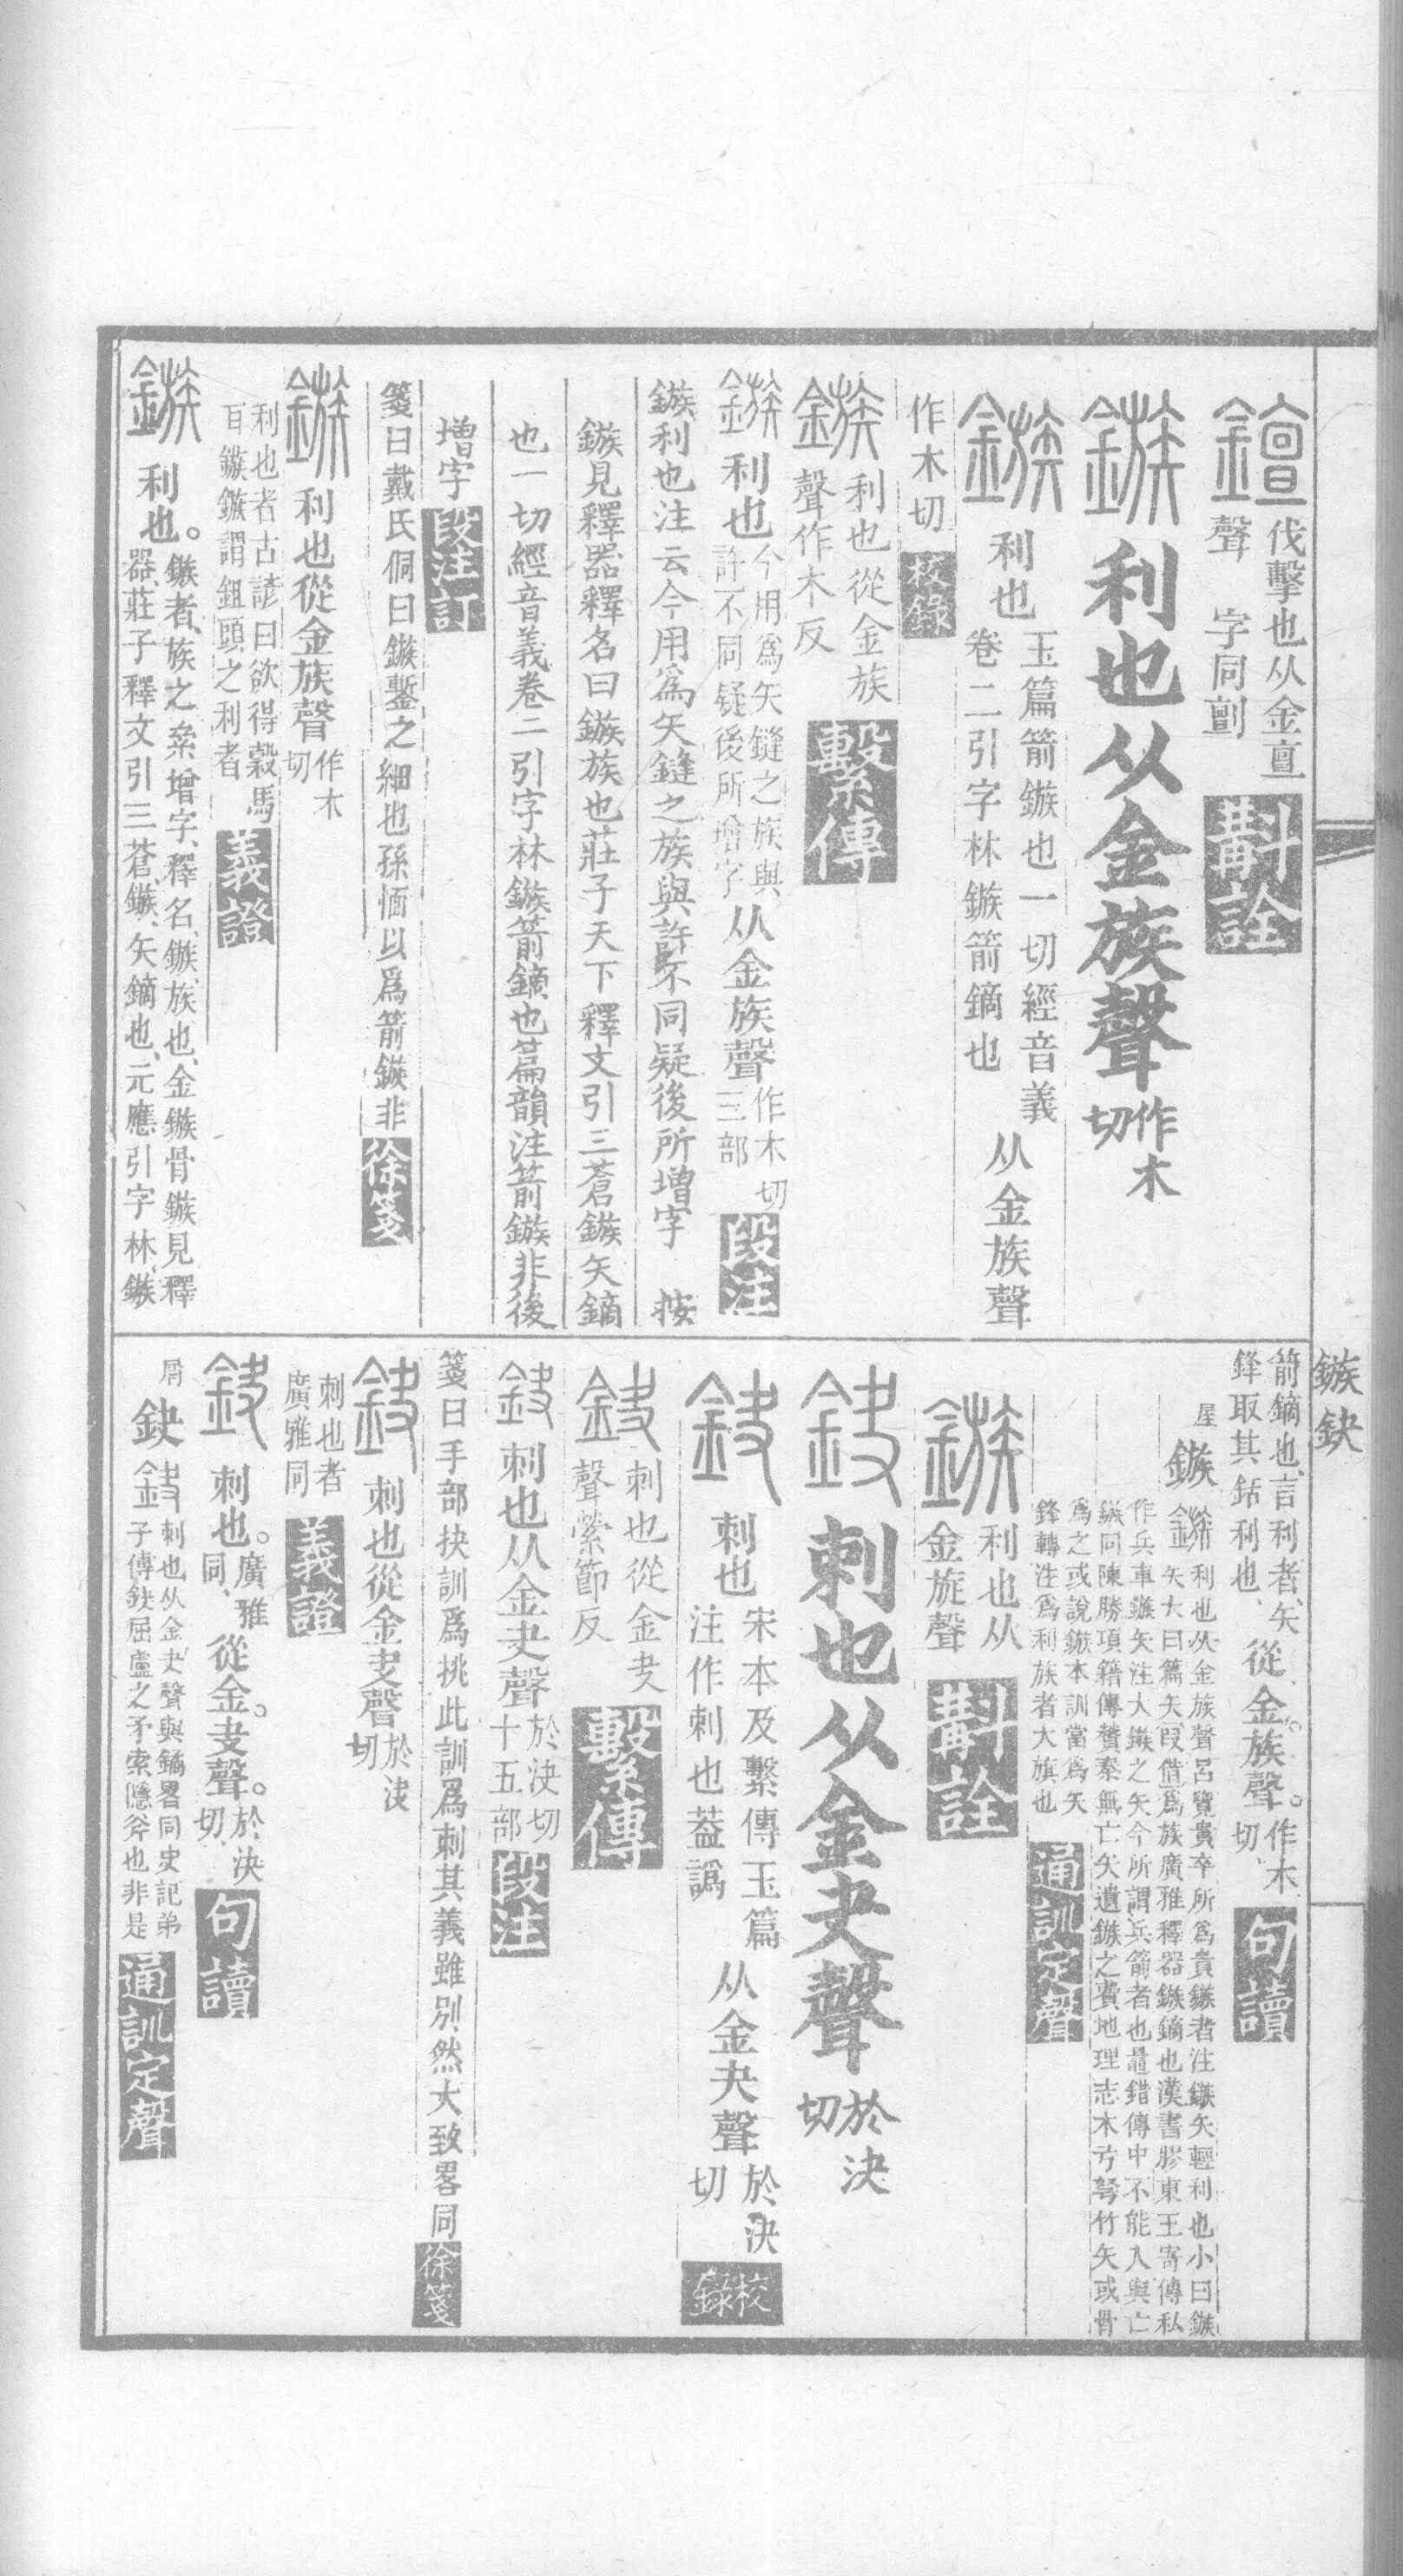 鏃鈌
鐔伐擊也从金亶
聲 字同剷 斠詮
鏃利也从金族聲作木切
鏃利也玉篇箭鏃也一切經音義
卷二引字林鏃箭鏑也从金族聲
作木切 校錄
鏃利也從金族
聲作木反 繫傳
鏃利也今用爲矢鏠之族與
許不同疑後所增字从金族聲作木切
三部 段注
鏃利也注云今用爲矢鏠之族與許不同疑後所增字 按
鏃見釋器釋名曰鏃族也莊子天下釋文引三蒼鏃矢鏑
也一切經音義卷二引字林鏃箭鏑也篇韻注箭鏃非後
增字 段注訂
箋曰戴氏侗曰鏃鏨之細也孫愐以爲箭鏃非 徐箋
鏃利也從金族聲作木切
利也者古諺曰欲得穀馬
百鏃鏃謂鉏頭之利者 義證
鏃利也。鏃者、族之絫增字、釋名、鏃、族也、金鏃骨鏃見釋
器、莊子釋文引三蒼、鏃、矢鏑也、元應引字林、鏃
箭鏑也、言利者、矢
鋒取其銛利也、從金。族聲。作木切、 句讀
屋
鏃 鏃利也从金族聲呂覽貴卒所爲貴鏃者注鏃矢輕利也小曰鏃
矢大曰篇矢叚借爲族廣雅釋器鏃鏑也漢書膠東王寄傳私
作兵車鏃矢注大鏃之矢今所謂兵箭者也鼂錯傳中不能入與亡
鏃同陳勝項籍傳贊秦無亡矢遺鏃之費地理志木弓弩竹矢或骨
爲之或說鏃本訓當爲矢
鋒轉注爲利族者大旗也 通訓定聲
鏃利也从
金族聲 斠詮
鈌刺也从金夬聲於決切
鈌刺也宋本及繫傳玉篇
注作刺也葢譌从金夬聲於決
切 校錄
鈌刺也從金夬
聲縈節反 繫傳
鈌刺也从金夬聲於決切
十五部 段注
箋曰手部抉訓爲挑此訓爲刺其義雖別然大致畧同 徐箋
鈌刺也從金夬聲於決切
刺也者
廣雅同 義證
鈌刺也。廣雅
同、從金。夬聲。於決
切、 句讀
屑
鈌 鈌刺也从金夬聲與鐍畧同史記弟
子傳鈌屈盧之矛索隱斧也非是 通訓定聲